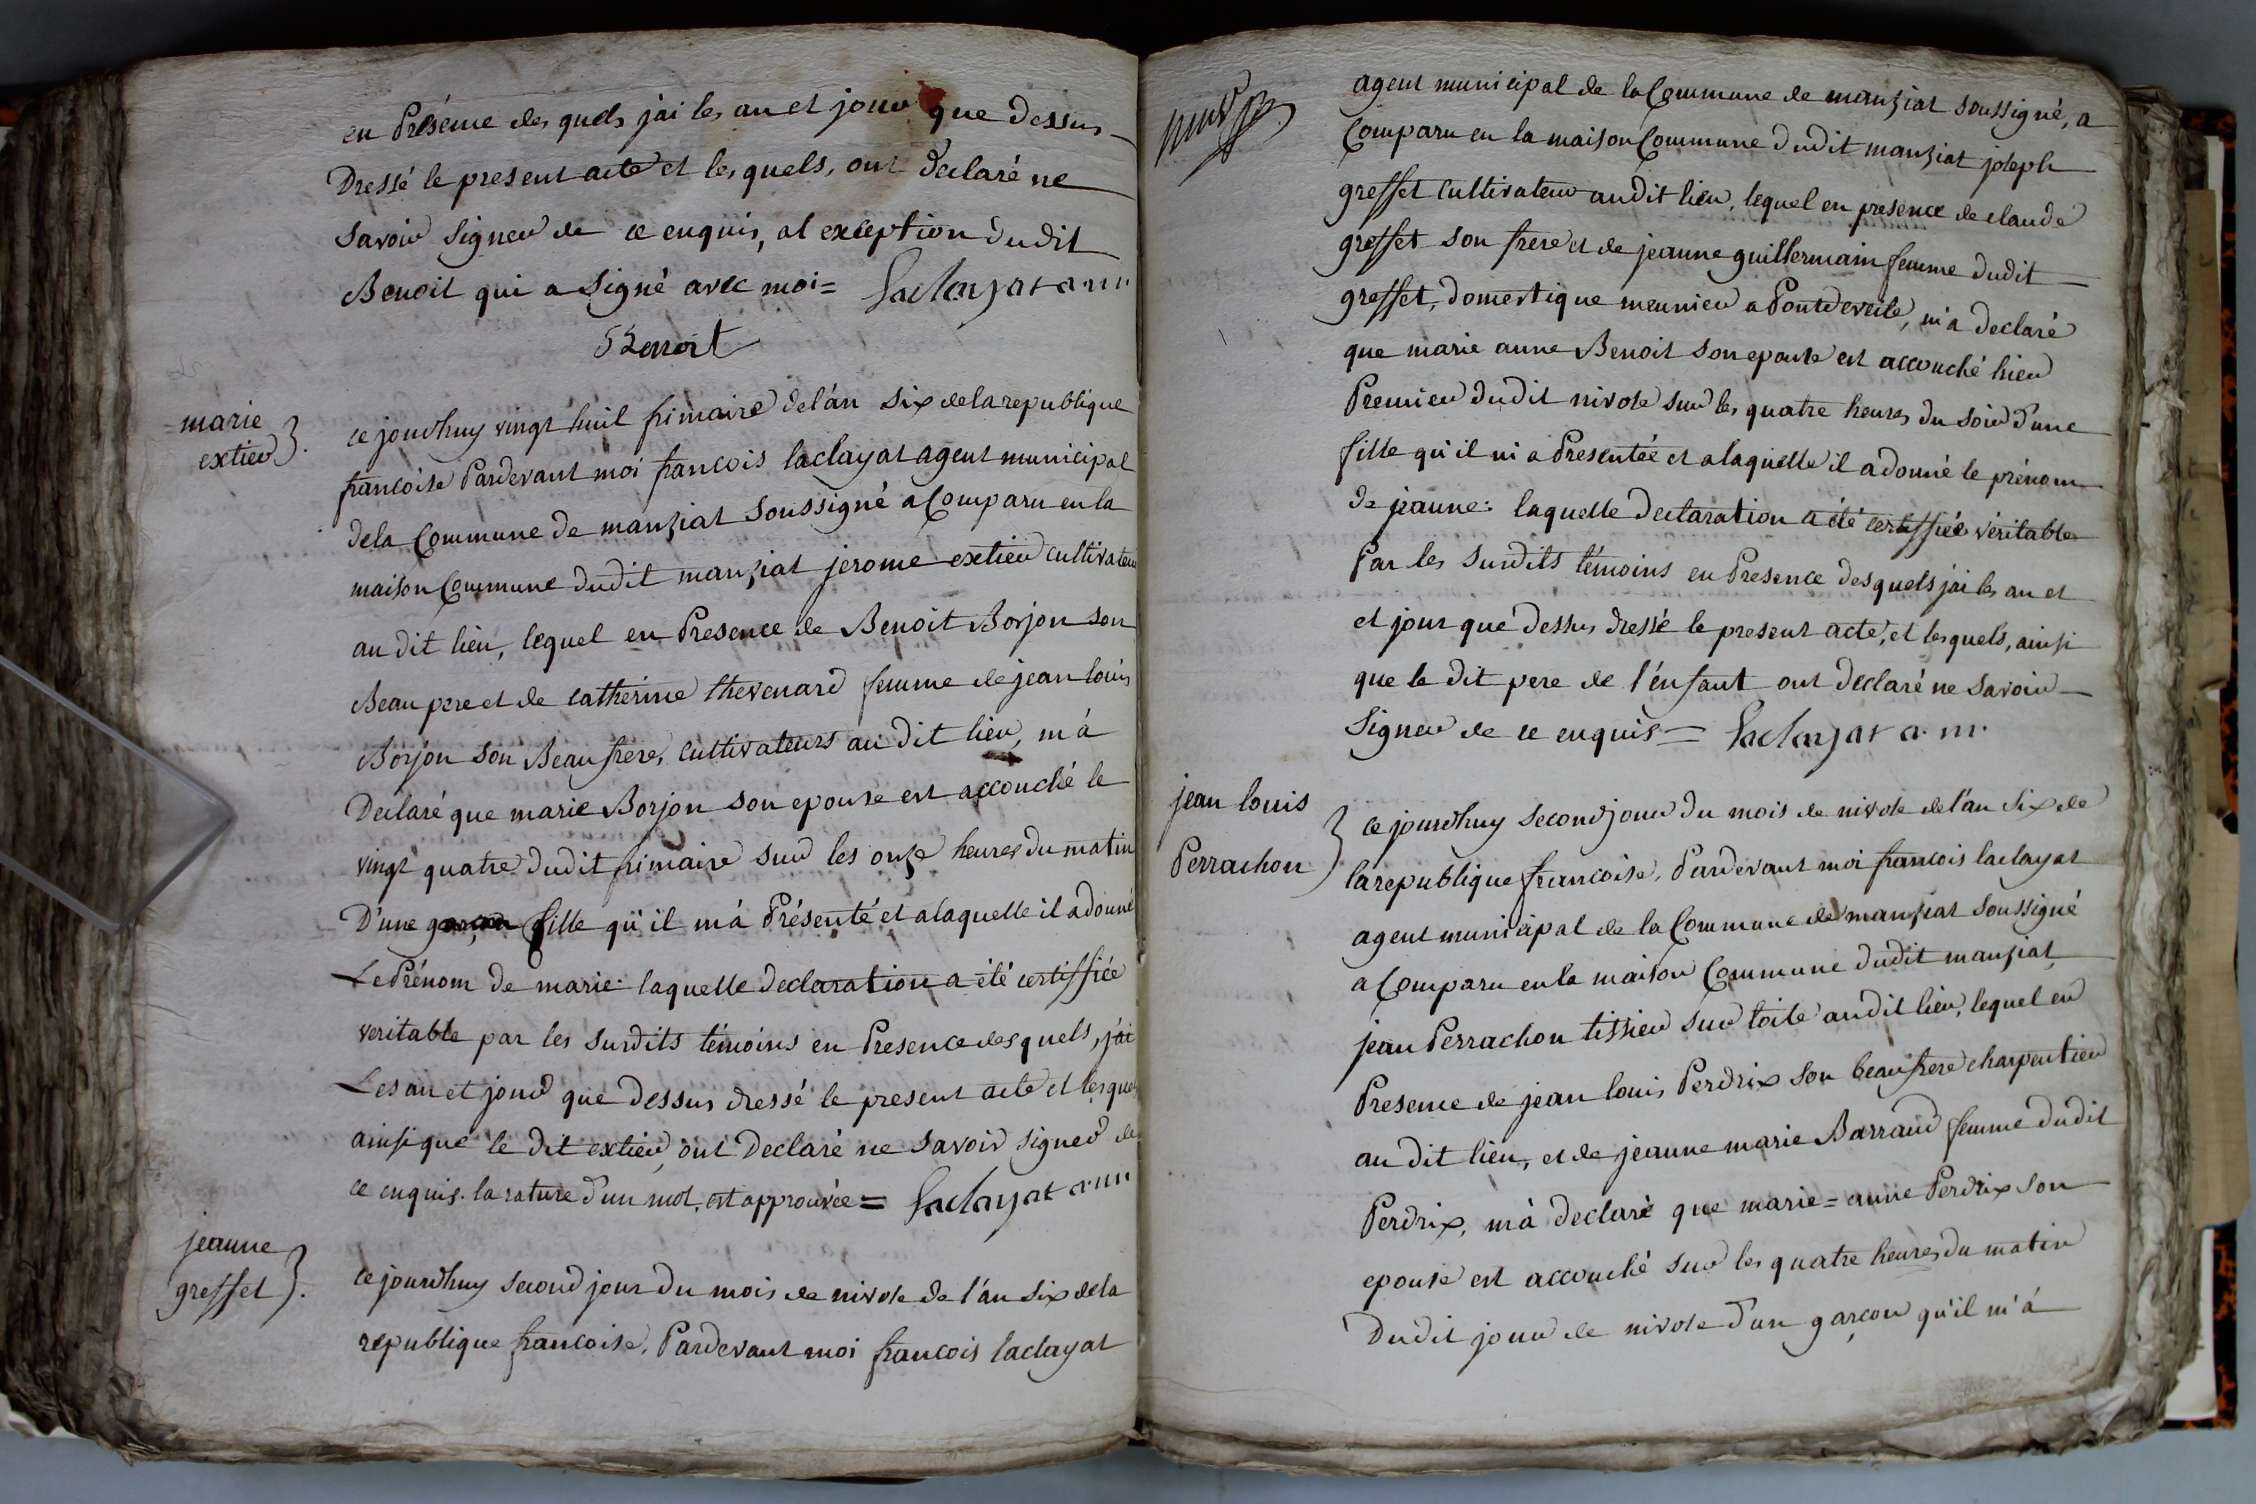 en présence des quels j'ai les an et jour que dessus
Dressé le present acte et les quels, ont déclaré ne
savoir signer de ce enquis, al exception dudit
Benoit qui a signé avec moi = Laclayat a.m.
Benoit
marie
extier
ce jourd'huy vingt huit frimaire del'an six de la republique
francoise Pardevant moi francois laclayat agent municipal
dela Commune de manziat soussigné a Comparu en la
maison Commune dudit manziat jerome extier cultivateur
au dit lieu, lequel en Presence de Benoit Borjon son
Beau pere et de catherine thevenard femme de jean louis
Borjon son Beau frere, cultivateurs au dit lieu, m'à
Declaré que marie Borjon son epouse est accouché le
vingt quatre dudit frimaire sur les onze heures du matin
D'une garçon fille qu'il m'à Présenté et alaquelle il a donné
Le Prénom de marie: laquelle declaration a été certiffiée
veritable par les susdits témoins en Presence des quels, j'ai
Les an et jour que dessus dressé le present acte et lesquels
ainsi que le dit extier, ont Declaré ne savoir signer de
ce enquis. la rature d'un mot est approuvée = Laclayat a.m.
jeanne
greffet
ce jourd'huy second jour du mois de nivose de l'an six dela
republique francoise, Pardevant moi francois laclayat
agent municipal de la Commune de manziat soussigné, a
Comparu en la maison Commune dudit manziat joseph
greffet cultivateur audit lieu, lequel en presence de claude
greffet son frere et de jeanne guillermain femme dudit
greffet, domestique meunier a Pontdeveile, m'a declaré
que marie anne Benoit son epouse est accouché hier
Premier dudit nivose sur les quatre heures du soir d'une
fille qu'il m'a Presentée et alaquelle il a donné le prénom
de jeanne: laquelle declaration a été certiffiée véritable
Par les susdits témoins en Presence desquels j'ai les an et
et jour que dessus dressé le present acte, et lesquels, ainsi
que le dit pere de l'enfant ont declaré ne savoir
signer de ce enquis = Laclayat a.m.
jean louis
Perrachon
ce jourd'huy second jour du mois de nivose de l'an six de
la republique francoise, Pardevant moi francois laclayat
agent municipal de la Commune de manziat soussigné
a Comparu en la maison Commune dudit manziat
jean Perrachon tissier sur toile audit lieu, lequel en
Presence de jean louis Perdrix son beaufrere charpentier
au dit lieu, et de jeanne marie Barraud femme dudit
Perdrix, m'à declaré que marie = anne Perdrix son
epouse est accouché sur les quatre heures du matin
Dudit jour de nivose d'un garçon qu'il m'à